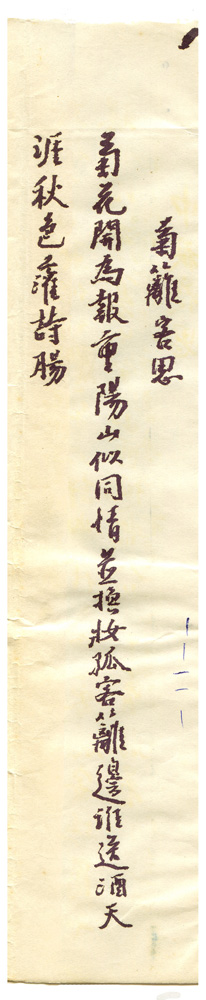 菊籬客思
菊花開為報重陽山似同情並撫妝孤客籬邊誰送酒天
涯秋色灌詩腸